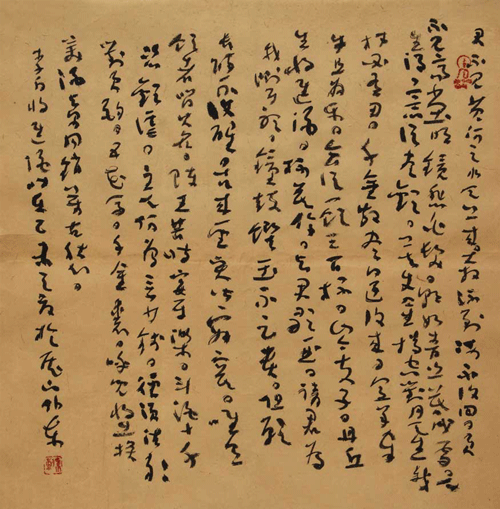 君不见黄河之水天上来奔流到海不复回君
不见高堂明镜悲白发朝如青丝暮成雪人
生得意须尽欢莫使金樽空对月天生我
材必有用千金散尽还复来烹羊宰
牛且为乐会须一饮三百杯岑夫子丹丘
生将进酒杯莫停与君歌一曲请君为
我倾耳听钟鼓馔玉不足贵但愿
长醉不复醒古来圣贤皆寂寞惟有
饮者留其名陈王昔时宴平乐斗酒十千
恣欢谑主人何为言少钱径须沽取
对君酌五花马千金裘呼儿将出换
美酒与尔同销万古愁
李白将进酒